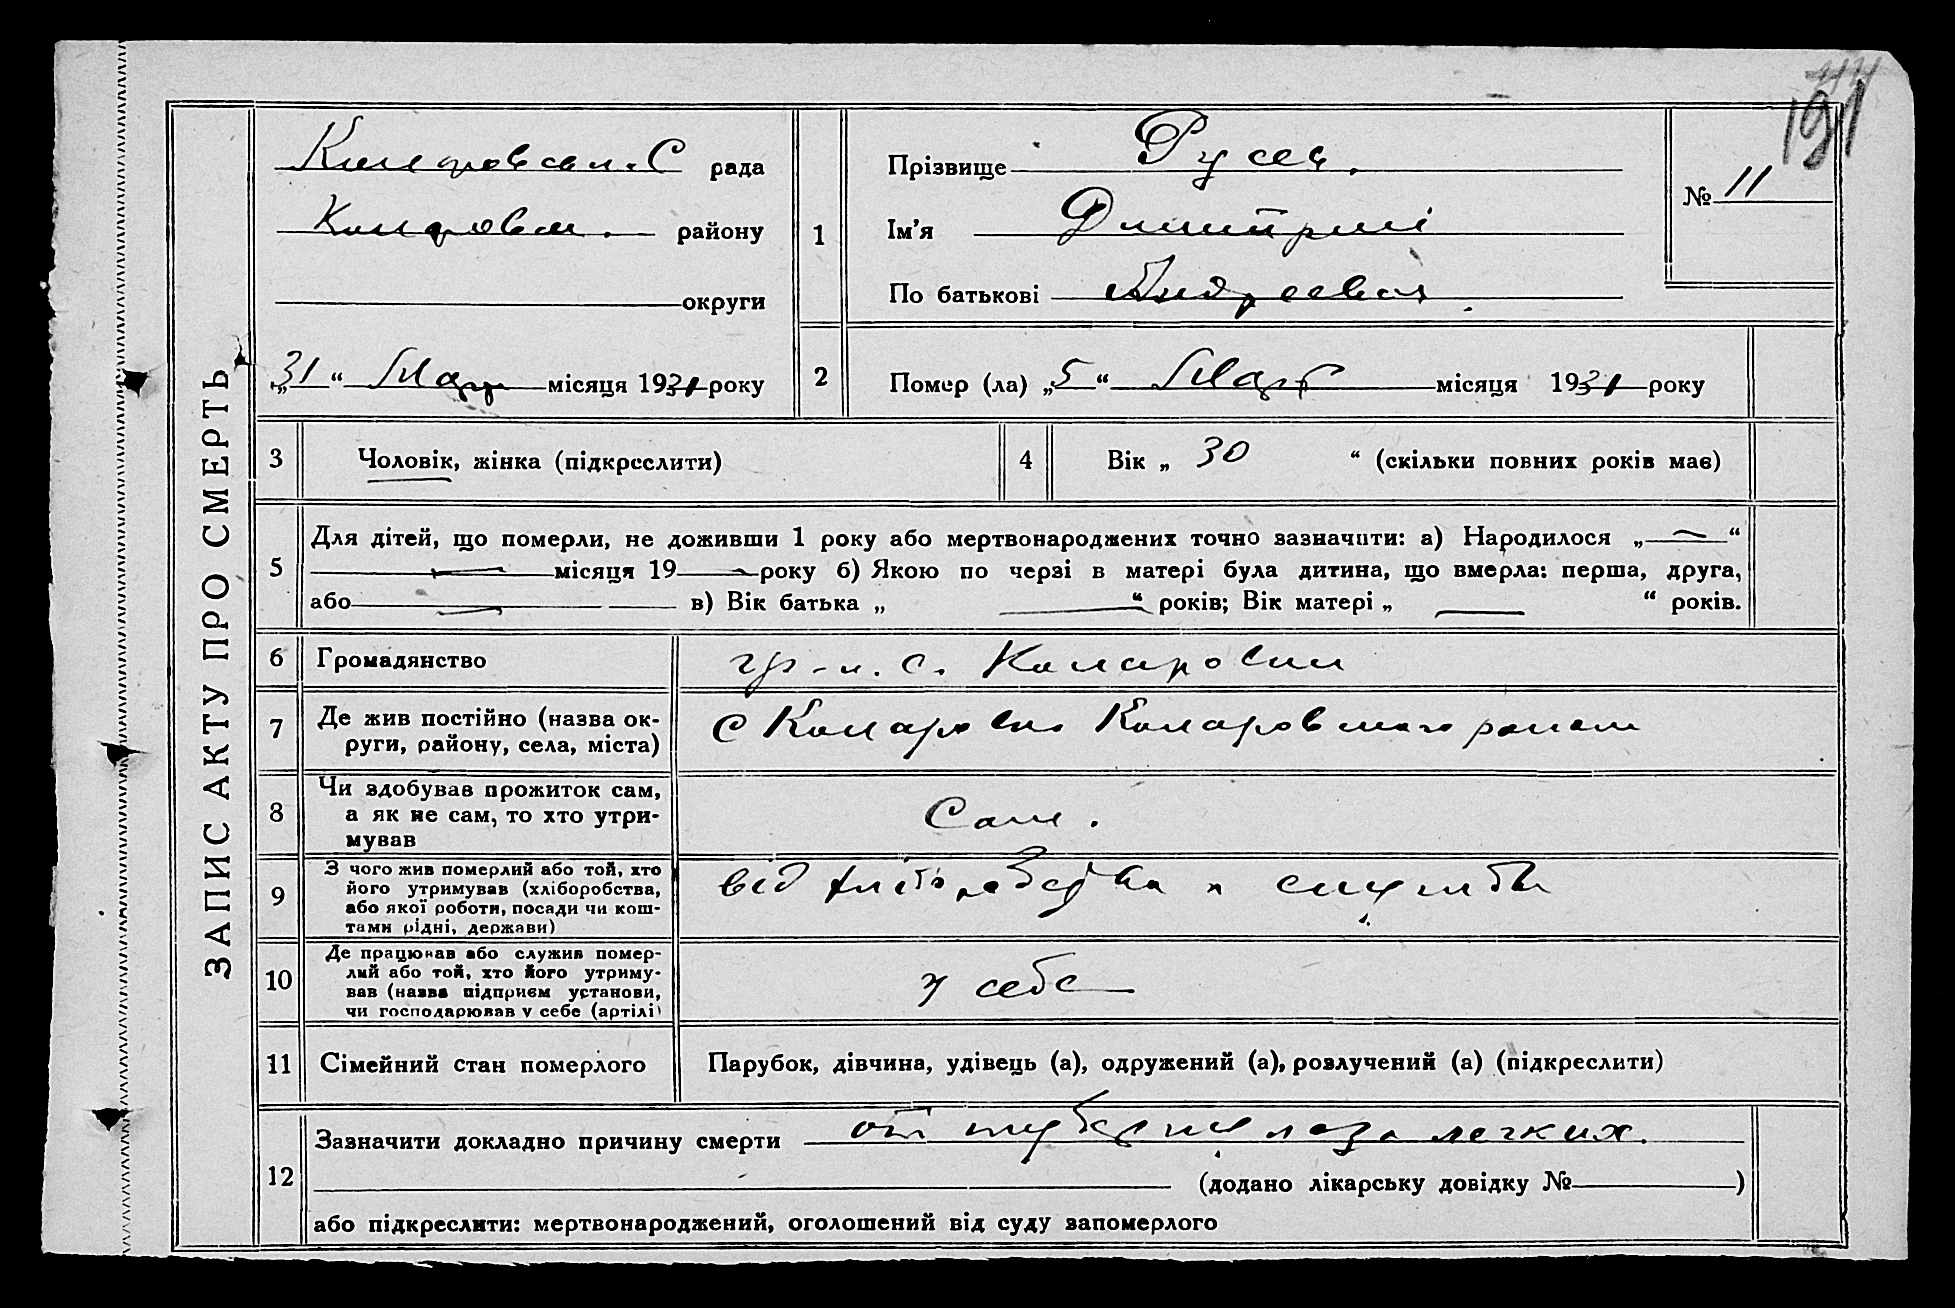 191
ЗАПИС АКТУ ПРО СМЕРТЬ
С рада
району
округи
„31“ Март місяця 1931 року
1 Прізвище Русев.
Ім’я Димитрий
По батькові Андреевич
№ 11
2 Помер (ла) „5“ Март місяця 1931 року
3 Чоловік, жінка (підкреслити)
4 Вік „ 30 “ (скільки повних років має)
5 Для дітей, що померли, не доживши 1 року або мертвонароджених точно зазначити: а) Народилося „ “
місяця 19 року б) Якою по черзі в матері була дитина, що вмерла: перша, друга,
або в) Вік батька „ “ років; Вік матері „ “ років.
6 Громадянство гр-н. с.
7 Де жив постійно (назва ок-
руги, району, села, міста) с
8 Чи здобував прожиток сам,
а як не сам, то хто утри-
мував Сам.
9 З чого жив померлий або той, хто
його утримував (хліборобства,
або якої роботи, посади чи кош-
тами рідні, держави) від
10 Де працював або служив помер-
лий або той, хто його утриму-
вав (назва підприєм установи,
чи господарював у себе (артілі) у себе
11 Сімейний стан померлого Парубок, дівчина, удівець (а), одружений (а), розлучений (а) (підкреслити)
12 Зазначити докладно причину смерти от туберкулоза легких.
(додано лікарську довідку № )
або підкреслити: мертвонароджений, оголошений від суду запомерлого